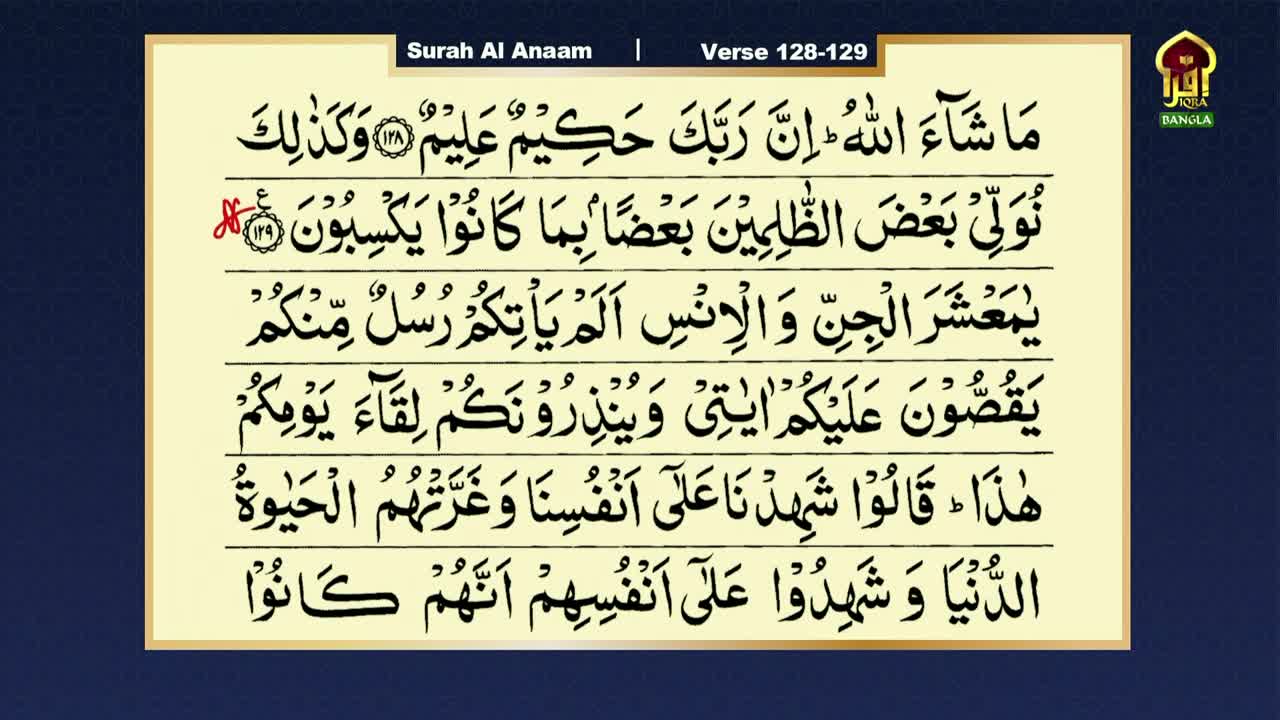 Surah Al Anaam | Verse 128-129
اقرأ
IQRA
BANGLA
مَا شَآءَ اللّٰهُ ؕ اِنَّ رَبَّكَ حَكِيْمٌ عَلِيْمٌ ﴿۱۲۸﴾ وَكَذٰلِكَ
نُوَلِّيْ بَعْضَ الظّٰلِمِيْنَ بَعْضًۢا بِمَا كَانُوْا يَكْسِبُوْنَ ﴿۱۲۹﴾ ع
يٰمَعْشَرَ الْجِنِّ وَالْاِنْسِ اَلَمْ يَاْتِكُمْ رُسُلٌ مِّنْكُمْ
يَقُصُّوْنَ عَلَيْكُمْ اٰيٰتِيْ وَيُنْذِرُوْنَكُمْ لِقَآءَ يَوْمِكُمْ
هٰذَا ؕ قَالُوْا شَهِدْنَا عَلٰٓى اَنْفُسِنَا وَغَرَّتْهُمُ الْحَيٰوةُ
الدُّنْيَا وَشَهِدُوْا عَلٰٓى اَنْفُسِهِمْ اَنَّهُمْ كَانُوْا